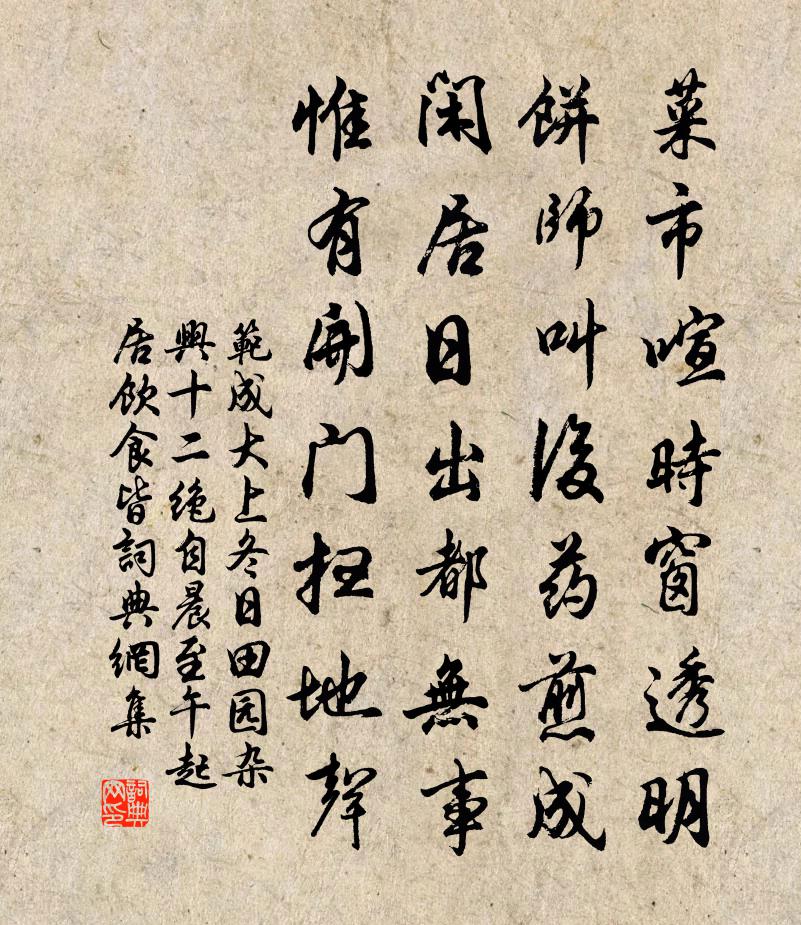 菜市喧時窗透明
餅師叫後药煎成
閑居日出都無事
惟有開门扫地聲
範成大上冬日田园杂
興十二绝自晨至午起
居飲食皆詞典網集
詞典网印